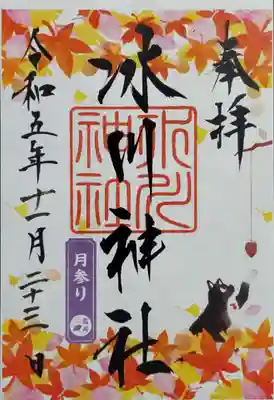 奉拝
氷川神社
氷川神社
月参り
令和五年十一月二十三日